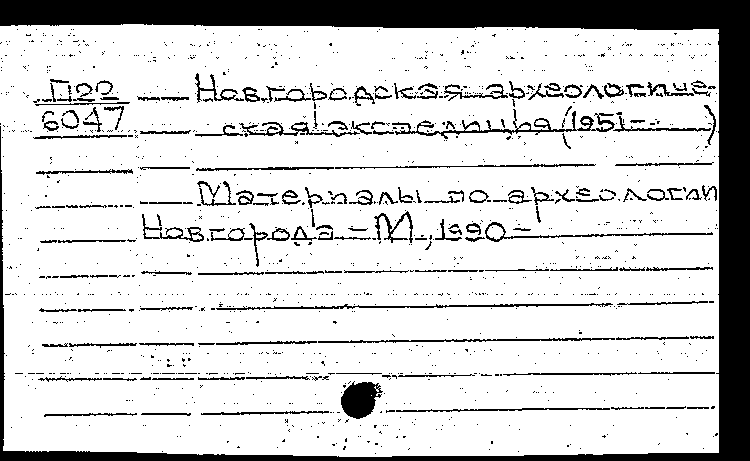 П22
6047
Новгородская археологиче-
ская экспедиция (1951-..)
Материалы по археологии
Новгорода - М., 1990 -